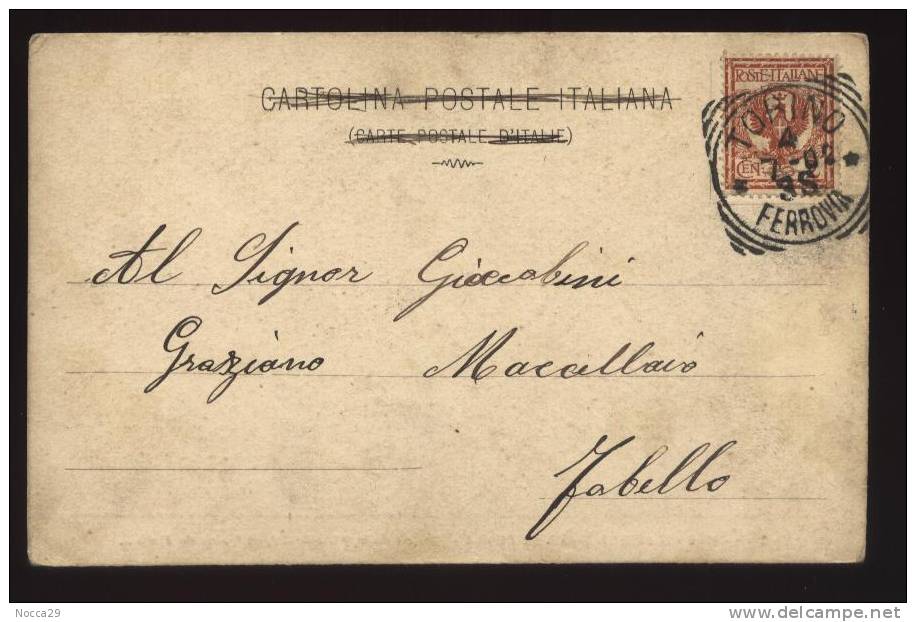 CARTOLINA POSTALE ITALIANA
(CARTE POSTALE D'ITALIE)
POSTE-ITALIANE
CEN. 2
TORINO
4
7-02
3S
FERROVIA
Al Signor Giacobini
Graziano Macellaio
Fobello
Nocca29
www.delcampe.net